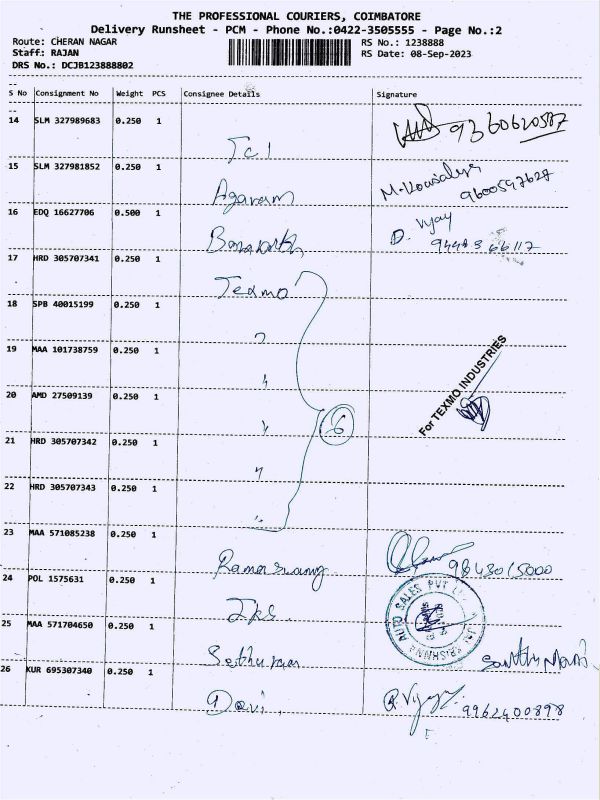 THE PROFESSIONAL COURIERS, COIMBATORE
Delivery Runsheet - PCM - Phone No.:0422-3505555 - Page No.:2
Route: CHERAN NAGAR RS No.: 1238888
Staff: RAJAN RS Date: 08-Sep-2023
DRS No.: DCJB123888802
S No Consignment No Weight PCS Consignee Details Signature
14 SLM 327989683 0.250 1
Tcl
15 SLM 327981852 0.250 1 M. Kowsalya
Agaram 9600597627
16 EDQ 16627706 0.500 1 D. Vijay
17 HRD 305707341 0.250 1
Texmo
18 SPB 40015199 0.250 1
19 MAA 101738759 0.250 1
20 AMD 27509139 0.250 1 For TEXMO INDUSTRIES
6
21 HRD 305707342 0.250 1
22 HRD 305707343 0.250 1
23 MAA 571085238 0.250 1
Ramaswamy 9843015000
24 POL 1575631 0.250 1
25 MAA 571704650 0.250 1
26 KUR 695307340 0.250 1
Davi. 9962400898